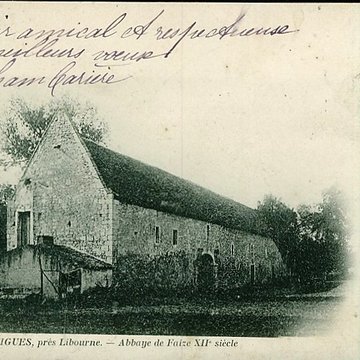 amical et respectueuse
meilleurs vœux
IGUES, près Libourne. — Abbaye de Faize XIIe siècle